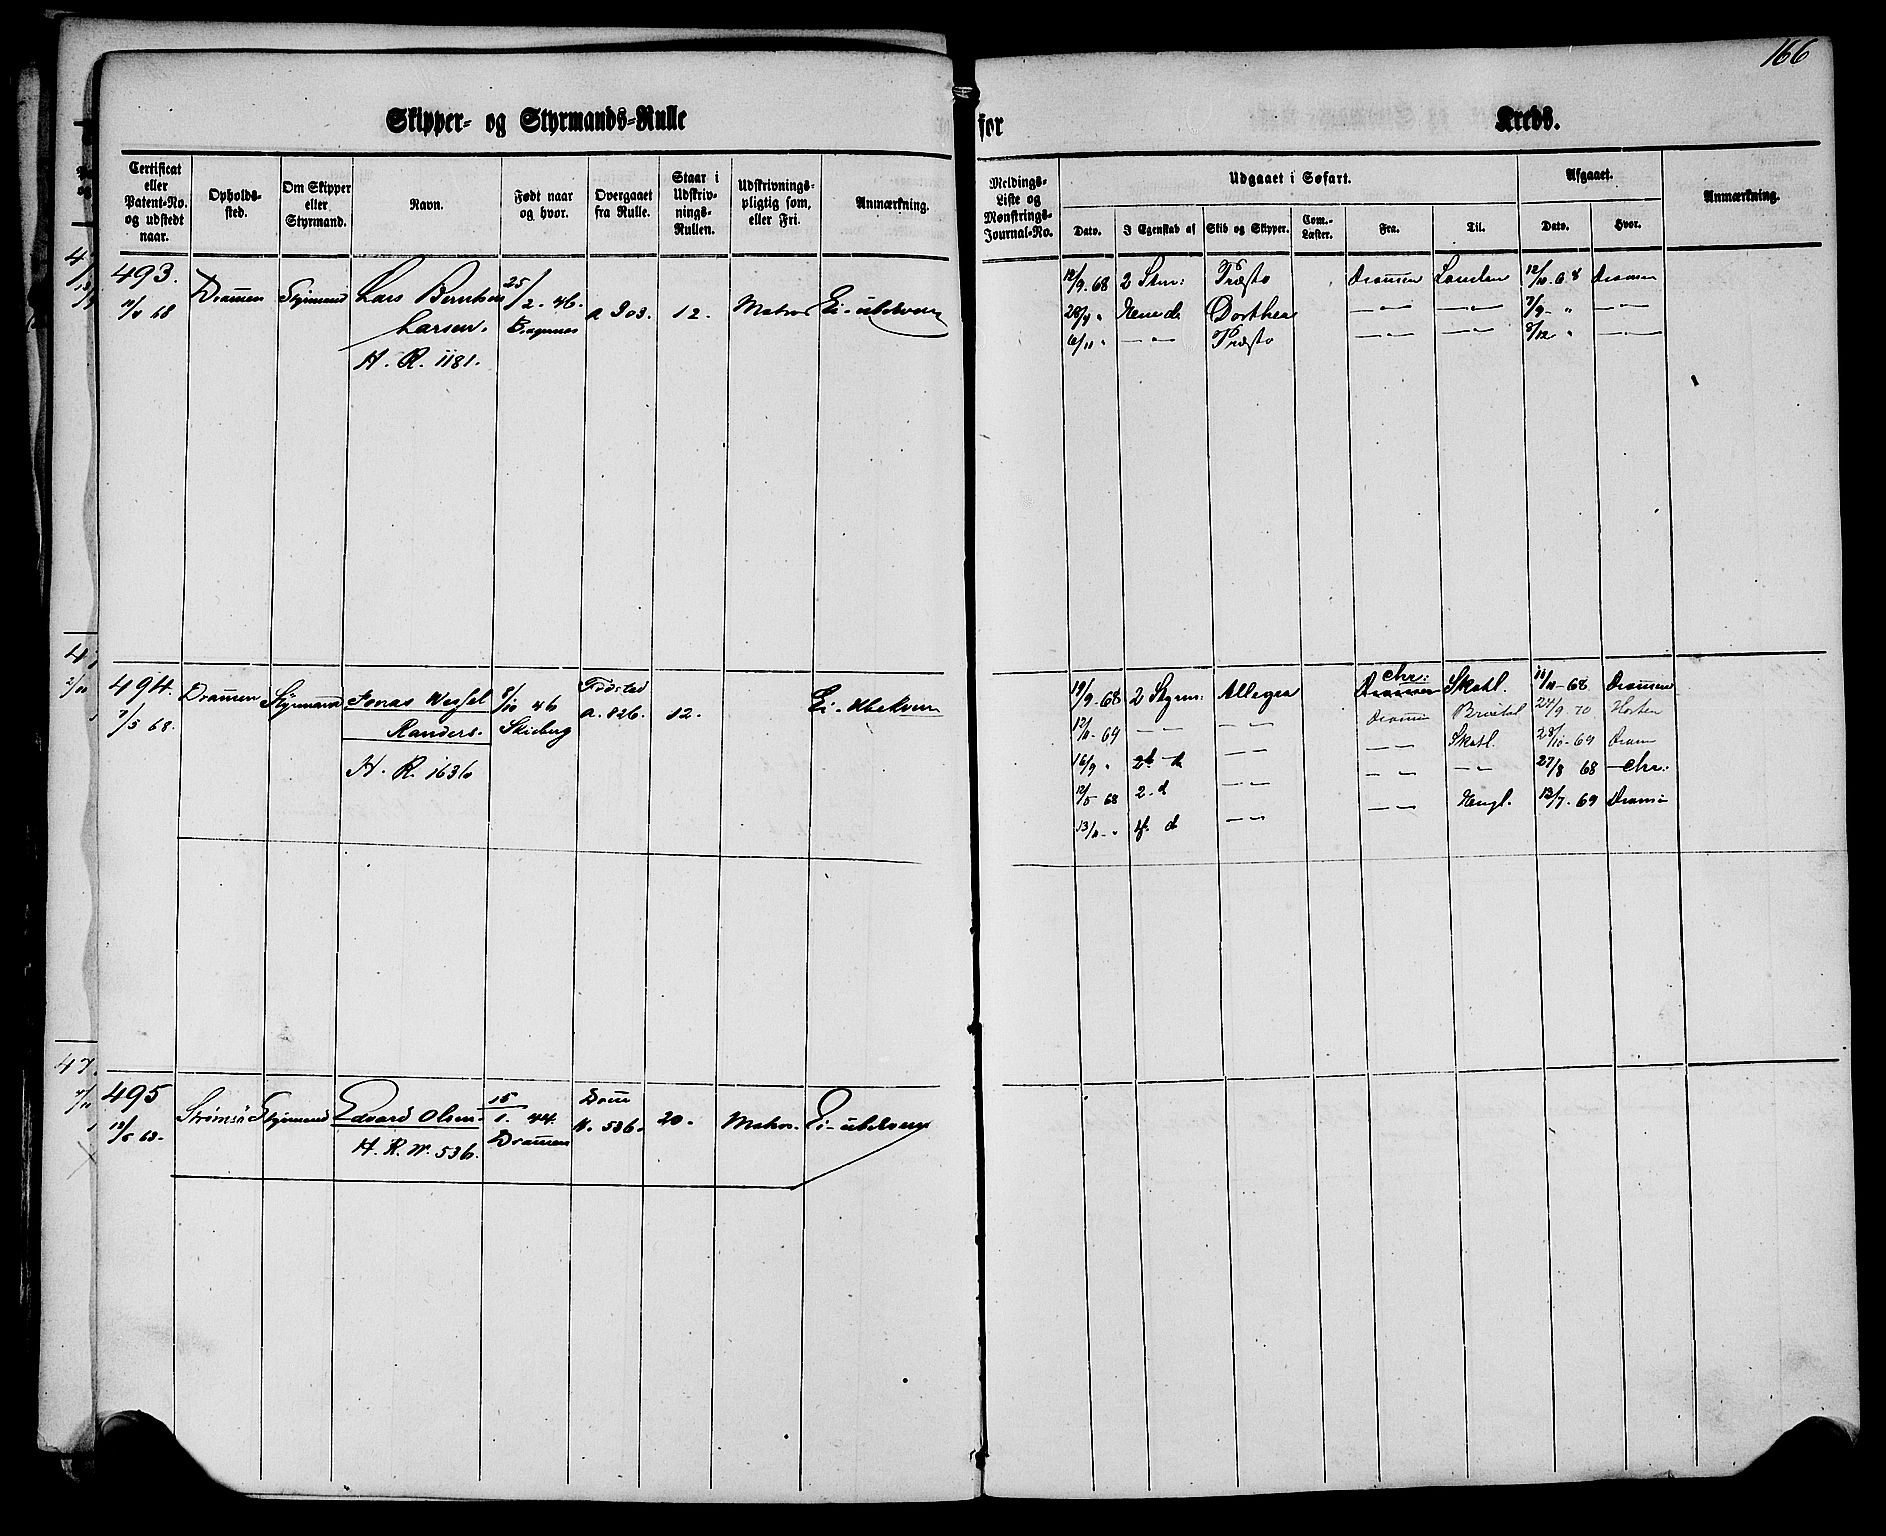 166
Skipper- og Styrmands-Rulle for Kreds.
Certificat eller Patent-No. og udstedt naar.
Opholds-sted.
Om Skipper eller Styrmand.
Navn.
Født naar og hvor.
Overgaaet fra Rulle.
Staar i Udskriv-nings-Rullen.
Udskrivnings-pligtig som, eller Fri.
Anmærkning.
Meldings-Liste og Mønstrings-Journal-No.
Udgaaet i Søfart.
Dato.
I Egenskab af
Skib og Skipper.
Com.-Læster.
Fra.
Til.
Afgaaet.
Dato.
Hvor.
Anmærkning.
493. Dramen Styrmand Lars Bernhard 25/2. 46. a 303. 12. Matros
Larsen. Bragernes
H. R. 1181.
12/9. 68 2 Stm: Præsto Dramen London 12/10. 68 Dramen
28/4 " Dorthea — " — — " — 7/9 - "
6/11 " — " — Præsto — " — — " — 8/12 "
494. Dramen Styrmand Jonas Wessel 8/10 46 a. 826. 12.
7/5 68. Randers.
H. R. 1636
19/9 - 68 2 Styrm: Allegra Chr: Skotl. 11/11 - 68 Dramen
Dramen
— " — — " — Dramen 24/9. 70 Horten
— " — — " — Skotl. 28/10 - 69 Dram
16/9 " — " — — " — 27/8 68 — Chr:
12/5 68 2 - d — " — — " — Engl. 12/7. 69 Dramen
— " —
495 Strømsø Styrmand Edvard Olsen. 15/1. 44. Dram N. 536. 20. Matros.
12/5 68. H. R. N. 536. Dramen